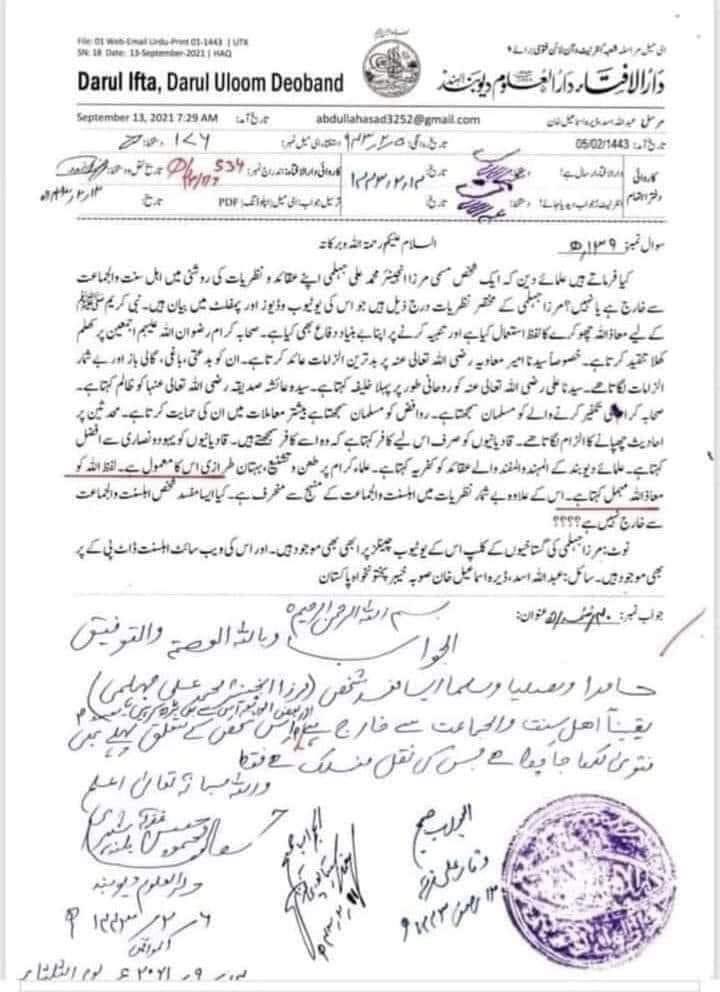 File: 01 Web-Email Urdu-Print 01-1443 | UTK
SN: 18 Date: 13-September-2021 | HAQ
ای میل مراسلہ شعبۂ انٹرنیٹ و آن لائن فتویٰ برائے
Darul Ifta, Darul Uloom Deoband
دارالافتاء دارالعلوم دیوبند الہند
September 13, 2021 7:29 AM تاریخ آمد: abdullahasad3252@gmail.com مرسل: عبداللہ اسد ڈیرہ اسماعیل خان
تاریخ آمد: 05/02/1443 تاریخ روانگی:
کاروائی دفتر اہتمام
دارالافتاء ارسال ہے! دستخط: تاریخ: کاروائی دارالافتاء: اندراج نمبر: 534
انٹرنیٹ پر جواب دیدیا جائے! دستخط: تاریخ: ترسیل جواب: ای میل / اپلوڈنگ / PDF تاریخ:
سوال نمبر: ۱۳۹ السلام علیکم رحمۃ اللہ وبرکاتہ
کیا فرماتے ہیں علمائے دین کہ ایک شخص مسمی مرزا انجینئر محمد علی جہلمی اپنے عقائد و نظریات کی روشنی میں اہل سنت والجماعت
سے خارج ہے یا نہیں؟ مرزا جہلمی کے مختصر نظریات درج ذیل ہیں جو اس کی یوٹیوب وڈیوز اور پمفلٹ میں بیان ہیں۔ نبی کریم ﷺ
کے لیے معاذ اللہ چھوکرے کا لفظ استعمال کیا ہے اور تنبیہ کرنے پر اپنا بے بنیاد دفاع بھی کیا ہے۔ صحابہ کرام رضوان اللہ علیہم اجمعین پر کھلم
کھلا تنقید کرتا ہے۔ خصوصاً سیدنا امیر معاویہ رضی اللہ تعالی عنہ پر بدترین الزامات عائد کرتا ہے۔ ان کو بدعتی، باغی، گالی باز اور بے شمار
الزامات لگاتا ہے۔ سیدنا علی رضی اللہ تعالی عنہ کو روحانی طور پر پہلا خلیفہ کہتا ہے۔ سیدہ عائشہ صدیقہ رضی اللہ تعالی عنہا کو ظالم کہتا ہے۔
صحابہ کرام کی تکفیر کرنے والے کو مسلمان سمجھتا ہے۔ روافض کو مسلمان سمجھتا ہے بیشتر معاملات میں ان کی حمایت کرتا ہے۔ محدثین پر
احادیث چھپانے کا الزام لگاتا ہے۔ قادیانیوں کو صرف اس لیے کافر کہتا ہے کہ وہ اسے کافر سمجھتے ہیں۔ قادیانیوں کو یہود و نصاری سے افضل
کہتا ہے۔ علمائے دیوبند کے المہند والمفند والے عقائد کو کفریہ کہتا ہے۔ علماء کرام پر طعن و تشنیع، بہتان طرازی اس کا معمول ہے۔ لفظ اللہ کو
معاذ اللہ مہمل کہتا ہے۔ اس کے علاوہ بے شمار نظریات میں اہلسنت والجماعت کے منہج سے منحرف ہے۔ کیا ایسا مفسد شخص اہلسنت والجماعت
سے خارج نہیں ہے؟؟؟؟
نوٹ: مرزا جہلمی کی گستاخیوں کے کلپ اس کے یوٹیوب چینلز پر ابھی بھی موجود ہیں۔ اور اس کی ویب سائٹ اہلسنت ڈاٹ پی کے پر
بھی موجود ہیں۔ سائل: عبداللہ اسد، ڈیرہ اسماعیل خان صوبہ خیبر پختونخواہ پاکستان
جواب نمبر: عنوان:
بسم اللہ الرحمن الرحیم
الجواب وباللہ العصمۃ والتوفیق
حامدا ومصلیا ومسلما ایسا مفسد شخص (مرزا انجینئر محمد علی جہلمی)
یقیناً اہل سنت والجماعت سے خارج ہے اس شخص کے متعلق پہلے بھی
فتویٰ لکھا جا چکا ہے جس کی نقل منسلک ہے فقط
واللہ سبحانہ تعالیٰ اعلم
دارالعلوم دیوبند
الجواب صحیح
الجواب صحیح
وقار علی غفرلہ